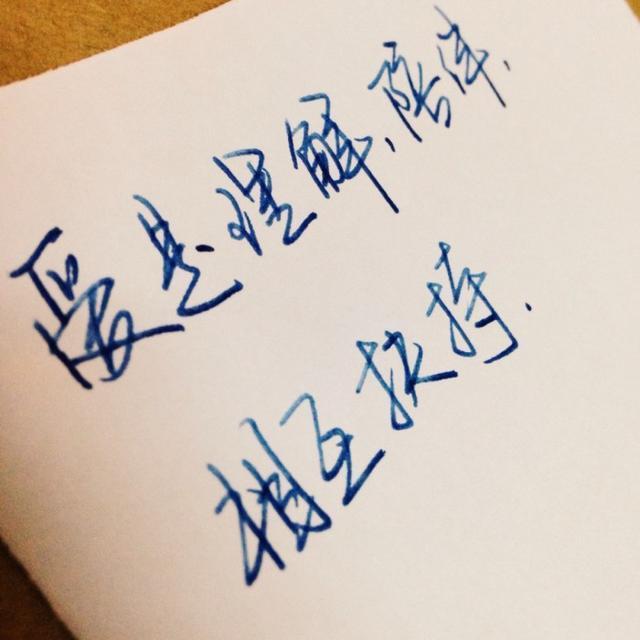 爱是理解、陪伴.
相互扶持.